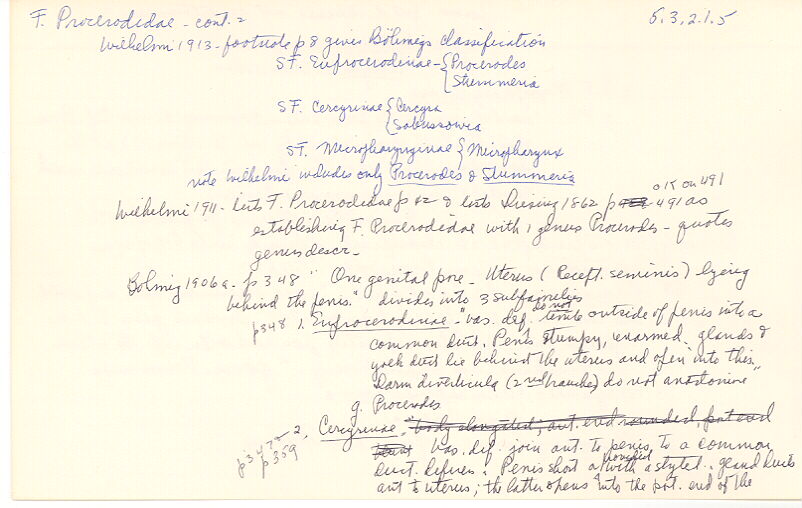 F. Procerodidae - cont. 2
5.3.2.1.5
Wilhelmi 1913 - footnote p 8 gives Böhmigs classification
SF. Euprocerodinae - { Procerodes
Stummeria
SF. Cercyrinae { Cercyra
Sabussowia
SF. Micropharynginae { Micropharynx
note Wilhelmi includes only Procerodes & Stummeria
OK on 491
Wilhelmi 1911 - lists F. Procerodidae p 42 & lists Diesing 1862 p 488 491 as
establishing F. Procerodidae with 1 genus Procerodes - quotes
genus descr.
Bohmig 1906a - p 348 " One genital pore - Uterus ( Recept. seminis) lying
behind the penis." divides into 3 subfamilies
do not
p348 1. Euprocerodinae - "vas. def. unite outside of penis into a
common duct. Penis stumpy, unarmed. glands &
yolk duct lie behind the uterus and open into this.
Darm diverticula (2nd branche) do not anastomose"
g. Procerodes
2. Cercyrinae - "body elongated, ant. end rounded, post end
p 347
p 359
Vas. def. join ant. to penis, to a common
duct. Deferen. Penis short or with a stylet. gland ducts
ant to uterus; the latter opens into the post. end of the